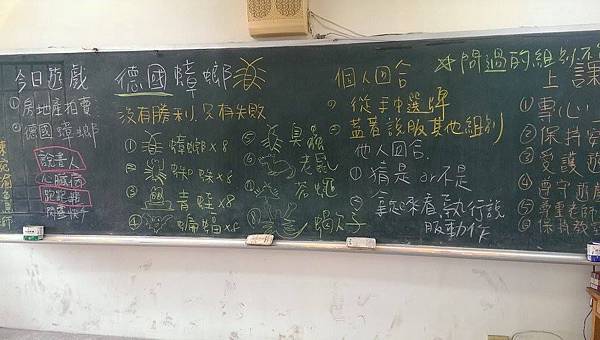 今日遊戲
①房地產拍賣
②德國蟑螂
說書人
心臟病
跑跑龜
閃靈快手
德國蟑螂
沒有勝利,只有失敗
①蟑螂x8
②蜘蛛x8
③青蛙x8
④蝙蝠x8
⑤臭蟲
⑥老鼠
⑦蒼蠅
⑧蠍子
個人回合
①從手中選牌
蓋著說服其他組別
他人回合
①猜是or不是
②氣味看執行說
服動作
☆問過的組別不
上課
①專心
②保持安
③愛護遊
④遵守遊
⑤尊重老師
⑥保持教室